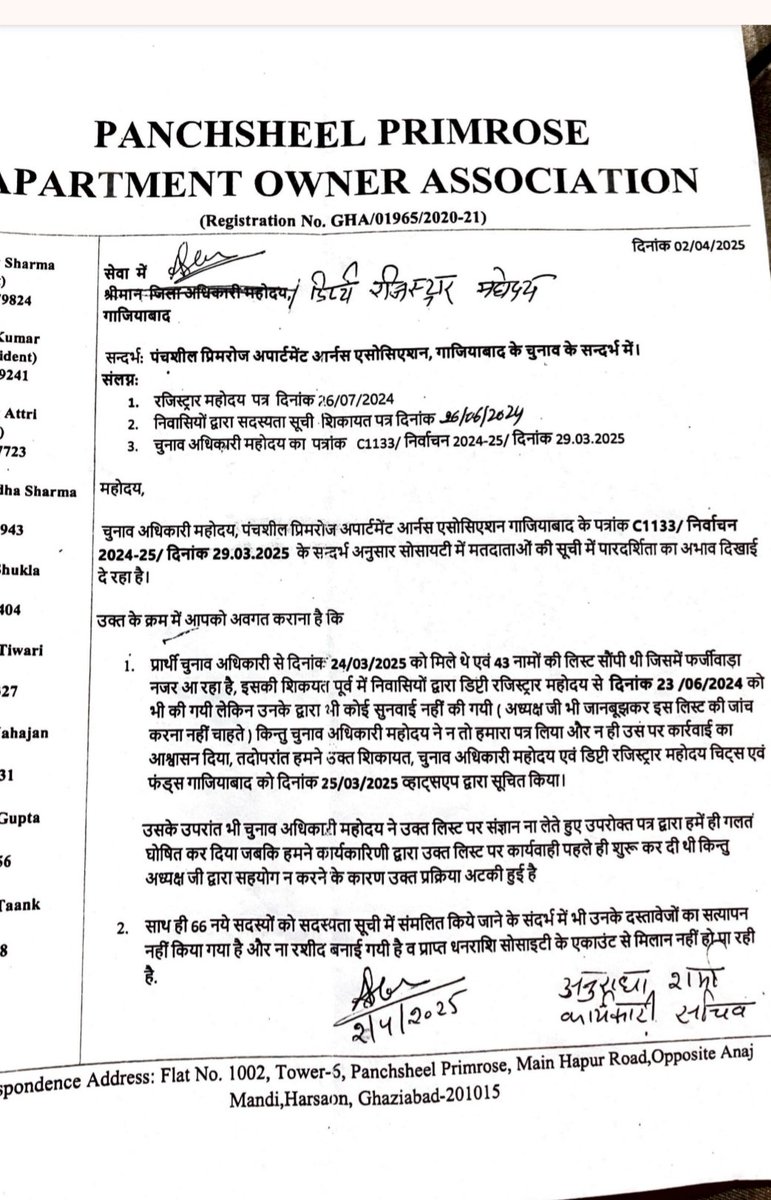 PANCHSHEEL PRIMROSE
APARTMENT OWNER ASSOCIATION
(Registration No. GHA/01965/2020-21)
दिनांक 02/04/2025
Sharma
)
9824
Kumar
ident)
9241
Attri
)
7723
dha Sharma
943
Shukla
404
Tiwari
27
ahajan
31
Gupta
56
Taank
8
सेवा में
श्रीमान जिला अधिकारी महोदय, डिप्टी रजिस्ट्रार महोदय
गाजियाबाद
सन्दर्भ: पंचशील प्रिमरोज अपार्टमेंट आर्नस एसोसिएशन, गाजियाबाद के चुनाव के सन्दर्भ में।
संलग्न:
1. रजिस्ट्रार महोदय पत्र दिनांक 26/07/2024
2. निवासियों द्वारा सदस्यता सूची शिकायत पत्र दिनांक 26/06/2024
3. चुनाव अधिकारी महोदय का पत्रांक C1133/ निर्वाचन 2024-25/ दिनांक 29.03.2025
महोदय,
चुनाव अधिकारी महोदय, पंचशील प्रिमरोज अपार्टमेंट आर्नस एसोसिएशन गाजियाबाद के पत्रांक C1133/ निर्वाचन
2024-25/ दिनांक 29.03.2025 के सन्दर्भ अनुसार सोसायटी में मतदाताओं की सूची में पारदर्शिता का अभाव दिखाई
दे रहा है।
उक्त के क्रम में आपको अवगत कराना है कि
1. प्रार्थी चुनाव अधिकारी से दिनांक 24/03/2025 को मिले थे एवं 43 नामों की लिस्ट सौंपी थी जिसमें फर्जीवाड़ा
नजर आ रहा है, इसकी शिकयत पूर्व में निवासियों द्वारा डिप्टी रजिस्ट्रार महोदय से दिनांक 23 /06/2024 को
भी की गयी लेकिन उनके द्वारा भी कोई सुनवाई नहीं की गयी ( अध्यक्ष जी भी जानबूझकर इस लिस्ट की जांच
करना नहीं चाहते ) किन्तु चुनाव अधिकारी महोदय ने न तो हमारा पत्र लिया और न ही उस पर कार्रवाई का
आश्वासन दिया, तदोपरांत हमने उक्त शिकायत, चुनाव अधिकारी महोदय एवं डिप्टी रजिस्ट्रार महोदय चिट्स एवं
फंड्स गाजियाबाद को दिनांक 25/03/2025 व्हाट्सएप द्वारा सूचित किया।
उसके उपरांत भी चुनाव अधिकारी महोदय ने उक्त लिस्ट पर संज्ञान ना लेते हुए उपरोक्त पत्र द्वारा हमें ही गलत
घोषित कर दिया जबकि हमने कार्यकारिणी द्वारा उक्त लिस्ट पर कार्यवाही पहले ही शुरू कर दी थी किन्तु
अध्यक्ष जी द्वारा सहयोग न करने के कारण उक्त प्रक्रिया अटकी हुई है
2. साथ ही 66 नये सदस्यों को सदस्यता सूची में संमलित किये जाने के संदर्भ में भी उनके दस्तावेजों का सत्यापन
नहीं किया गया है और ना रशीद बनाई गयी है व प्राप्त धनराशि सोसाइटी के एकाउंट से मिलान नहीं हो पा रही
है.
2/4/2025
अनुराधा शर्मा
कार्यकारी सचिव
spondence Address: Flat No. 1002, Tower-5, Panchsheel Primrose, Main Hapur Road,Opposite Anaj
Mandi,Harsaon, Ghaziabad-201015